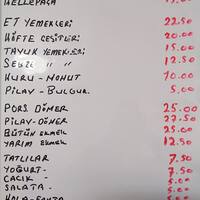 KELLEPAÇA 15.00
ET YEMEKLERİ 22.50
KÖFTE ÇEŞİTLERİ 20.00
TAVUK YEMEKLERİ 15.00
SEBZE " " 12.50
KURU - NOHUT 10.00
PİLAV - BULGUR. 5.00
PORS DÖNER 25.00
PİLAV-DÖNER 27.50
BÜTÜN EKMEK 25.00
YARIM EKMEK 12.50
TATLILAR 7.50
YOĞURT - 7.50
CACIK - 5.00
SALATA - 5.00